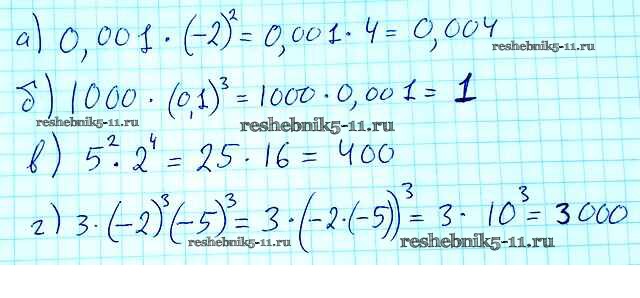 а) 0,001 · (-2)² = 0,001 · 4 = 0,004
reshebnik5-11.ru
б) 1000 · (0,1)³ = 1000 · 0,001 = 1
reshebnik5-11.ru
reshebnik5-11.ru
в) 5² · 2⁴ = 25 · 16 = 400
г) 3 · (-2)³ (-5)³ = 3 · (-2·(-5))³ = 3 · 10³ = 3000
reshebnik5-11.ru
reshebnik5-11.ru